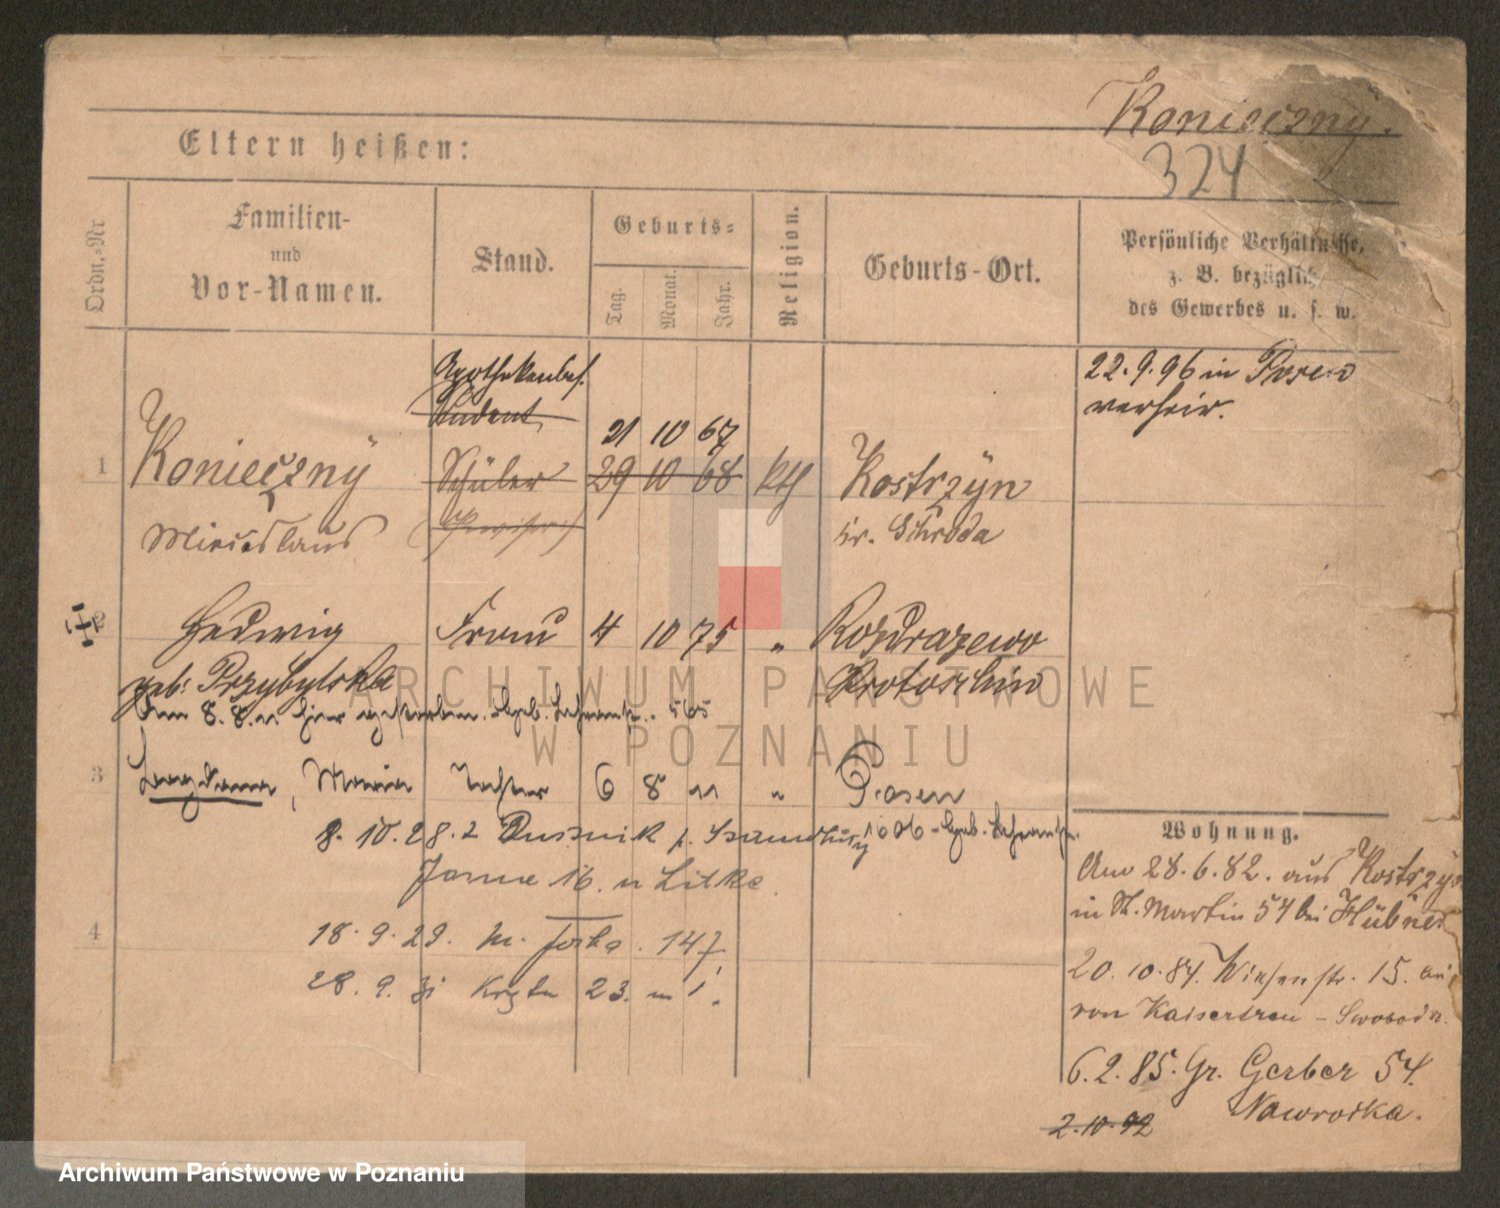 Konieczny.
324
Eltern heißen:
Ordn.-Nr
Familien-
und
Vor-Namen.
Stand.
Geburts-
Tag.
Monat.
Jahr.
Religion.
Geburts-Ort.
Persönliche Verhältnisse,
z. B. bezüglich
des Gewerbes u. s. w.
Apothekenbes.
Student
22.9.96 in Posen
verheir.
21 10 67
1 Konieczny Schüler 29 10 68 kth Kostrzyn
Miecislaus Kr. Schroda
2 Hedwig Frau 4 10 75 " Rozdrazewo
geb. Przybylska Krotoschin
Am 8.8.11 hier gestorben. 565
3 Maria Tochter 6 8 11 " Posen
8.10.28. Dusznik p. Szamotuły
Jasna 16. u Litke
4 18.9.29. 147
28.9.31 23. m 1.
Wohnung.
Am 28.6.82. aus Kostrzyn
in St. Martin 54 bei Hübner
20.10.84. Wiesenstr. 15.
von Kaisertreu - Swoboda.
6.2.85. Gr. Gerber 54.
Nawrocka.
2.10.92
ARCHIWUM PAŃSTWOWE
W POZNANIU
Archiwum Państwowe w Poznaniu